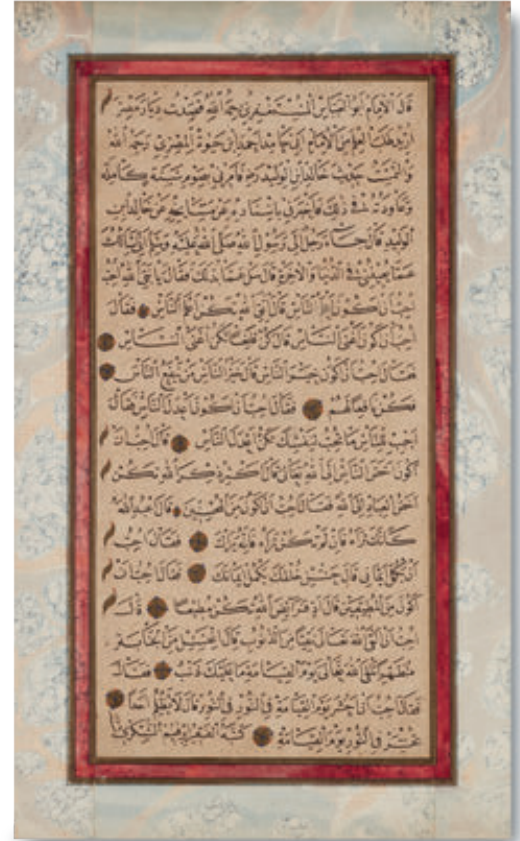 قال الامام ابو العباس المستغفري رحمه الله قصدت ديار مصر
اريد طلب العلم من الامام ابي حامد احمد ابن المصري رحمه الله
حديث خالد ابن الوليد رضه فامرني بصوم سنة كاملة
ذلك فاخبرني باسناده عن مشايخه عن خالد ابن
الوليد قال جاء رجل الى رسول الله صلى الله عليه وسلم
عما يعنيني في الدنيا والاخرة قال سل عما بدا لك فقال يا نبي الله
احب ان اكون اعلم الناس قال اتق الله تكن اعلم الناس فقال
احب ان اكون اغنى الناس قال كن قنعا تكن اغنى الناس
فقال احب ان اكون خير الناس قال خير الناس من ينفع الناس
فكن نافعا لهم فقال احب ان اكون اعدل الناس فقال
احب للناس ما تحب لنفسك تكن اعدل الناس قال احب ان
اكون اخص الناس الى الله تعالى قال اكثر ذكر الله تكن
اخص العباد الى الله فقال احب ان اكون من المحسنين قال اعبد الله
كانك تراه فان لم تكن تراه فانه يراك فقال احب
ان يكمل ايماني قال حسن خلقك يكمل ايمانك فقال احب ان
اكون من المطيعين قال اد فرائض الله تكن مطيعا قال
احب ان القى الله تعالى نقيا من الذنوب قال اغتسل من الجنابة
متطهرا تلقى الله تعالى يوم القيامة وما عليك ذنب فقال
احب ان احشر يوم القيامة في النور قال لا تظلم احدا
تحشر في النور يوم القيامة كتبه الفقير